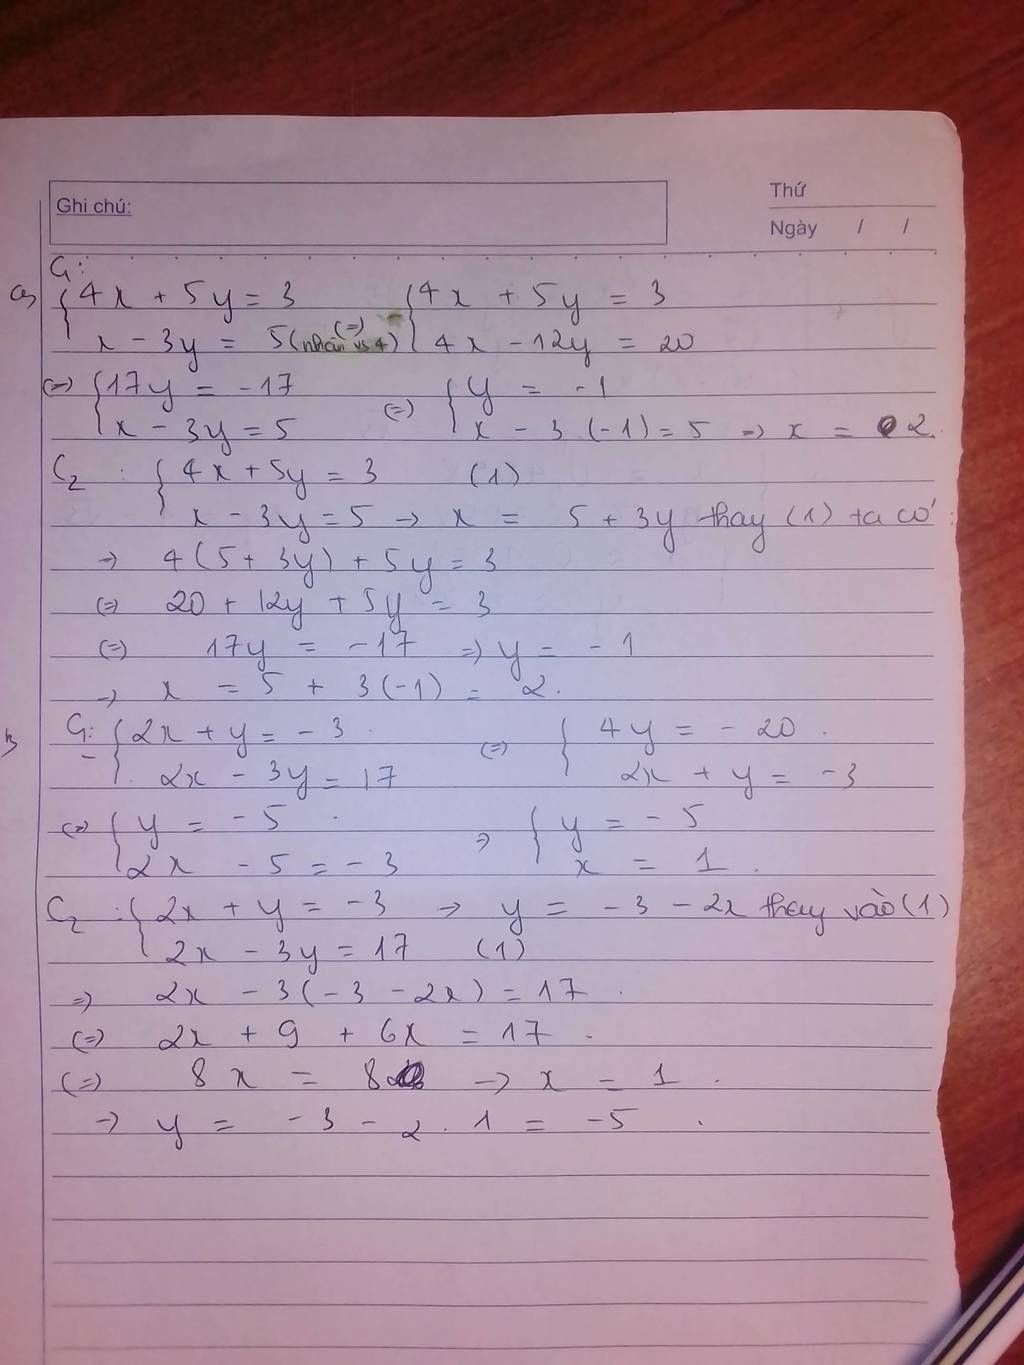 Thứ
Ghi chú:
Ngày / /
C1:
a) { 4x + 5y = 3 { 4x + 5y = 3
x - 3y = 5 (nhân vs 4) (=) 4x - 12y = 20
(=) { 17y = -17 (=) { y = -1
x - 3y = 5 x - 3 (-1) = 5 => x = 2.
C2 : { 4x + 5y = 3 (1)
x - 3y = 5 → x = 5 + 3y thay (1) ta có :
→ 4(5 + 3y) + 5y = 3
(=) 20 + 12y + 5y = 3
(=) 17y = -17 => y = -1
→ x = 5 + 3(-1) = 2.
b C1: { 2x + y = -3 . (=) { 4y = -20 .
2x - 3y = 17 2x + y = -3
(=) { y = -5 . => { y = -5
2x - 5 = -3 x = 1 .
C2 : { 2x + y = -3 → y = -3 - 2x thay vào (1)
2x - 3y = 17 (1)
=> 2x - 3(-3 - 2x) = 17 .
(=) 2x + 9 + 6x = 17 .
(=) 8x = 8 → x = 1 .
→ y = -3 - 2 . 1 = -5 .